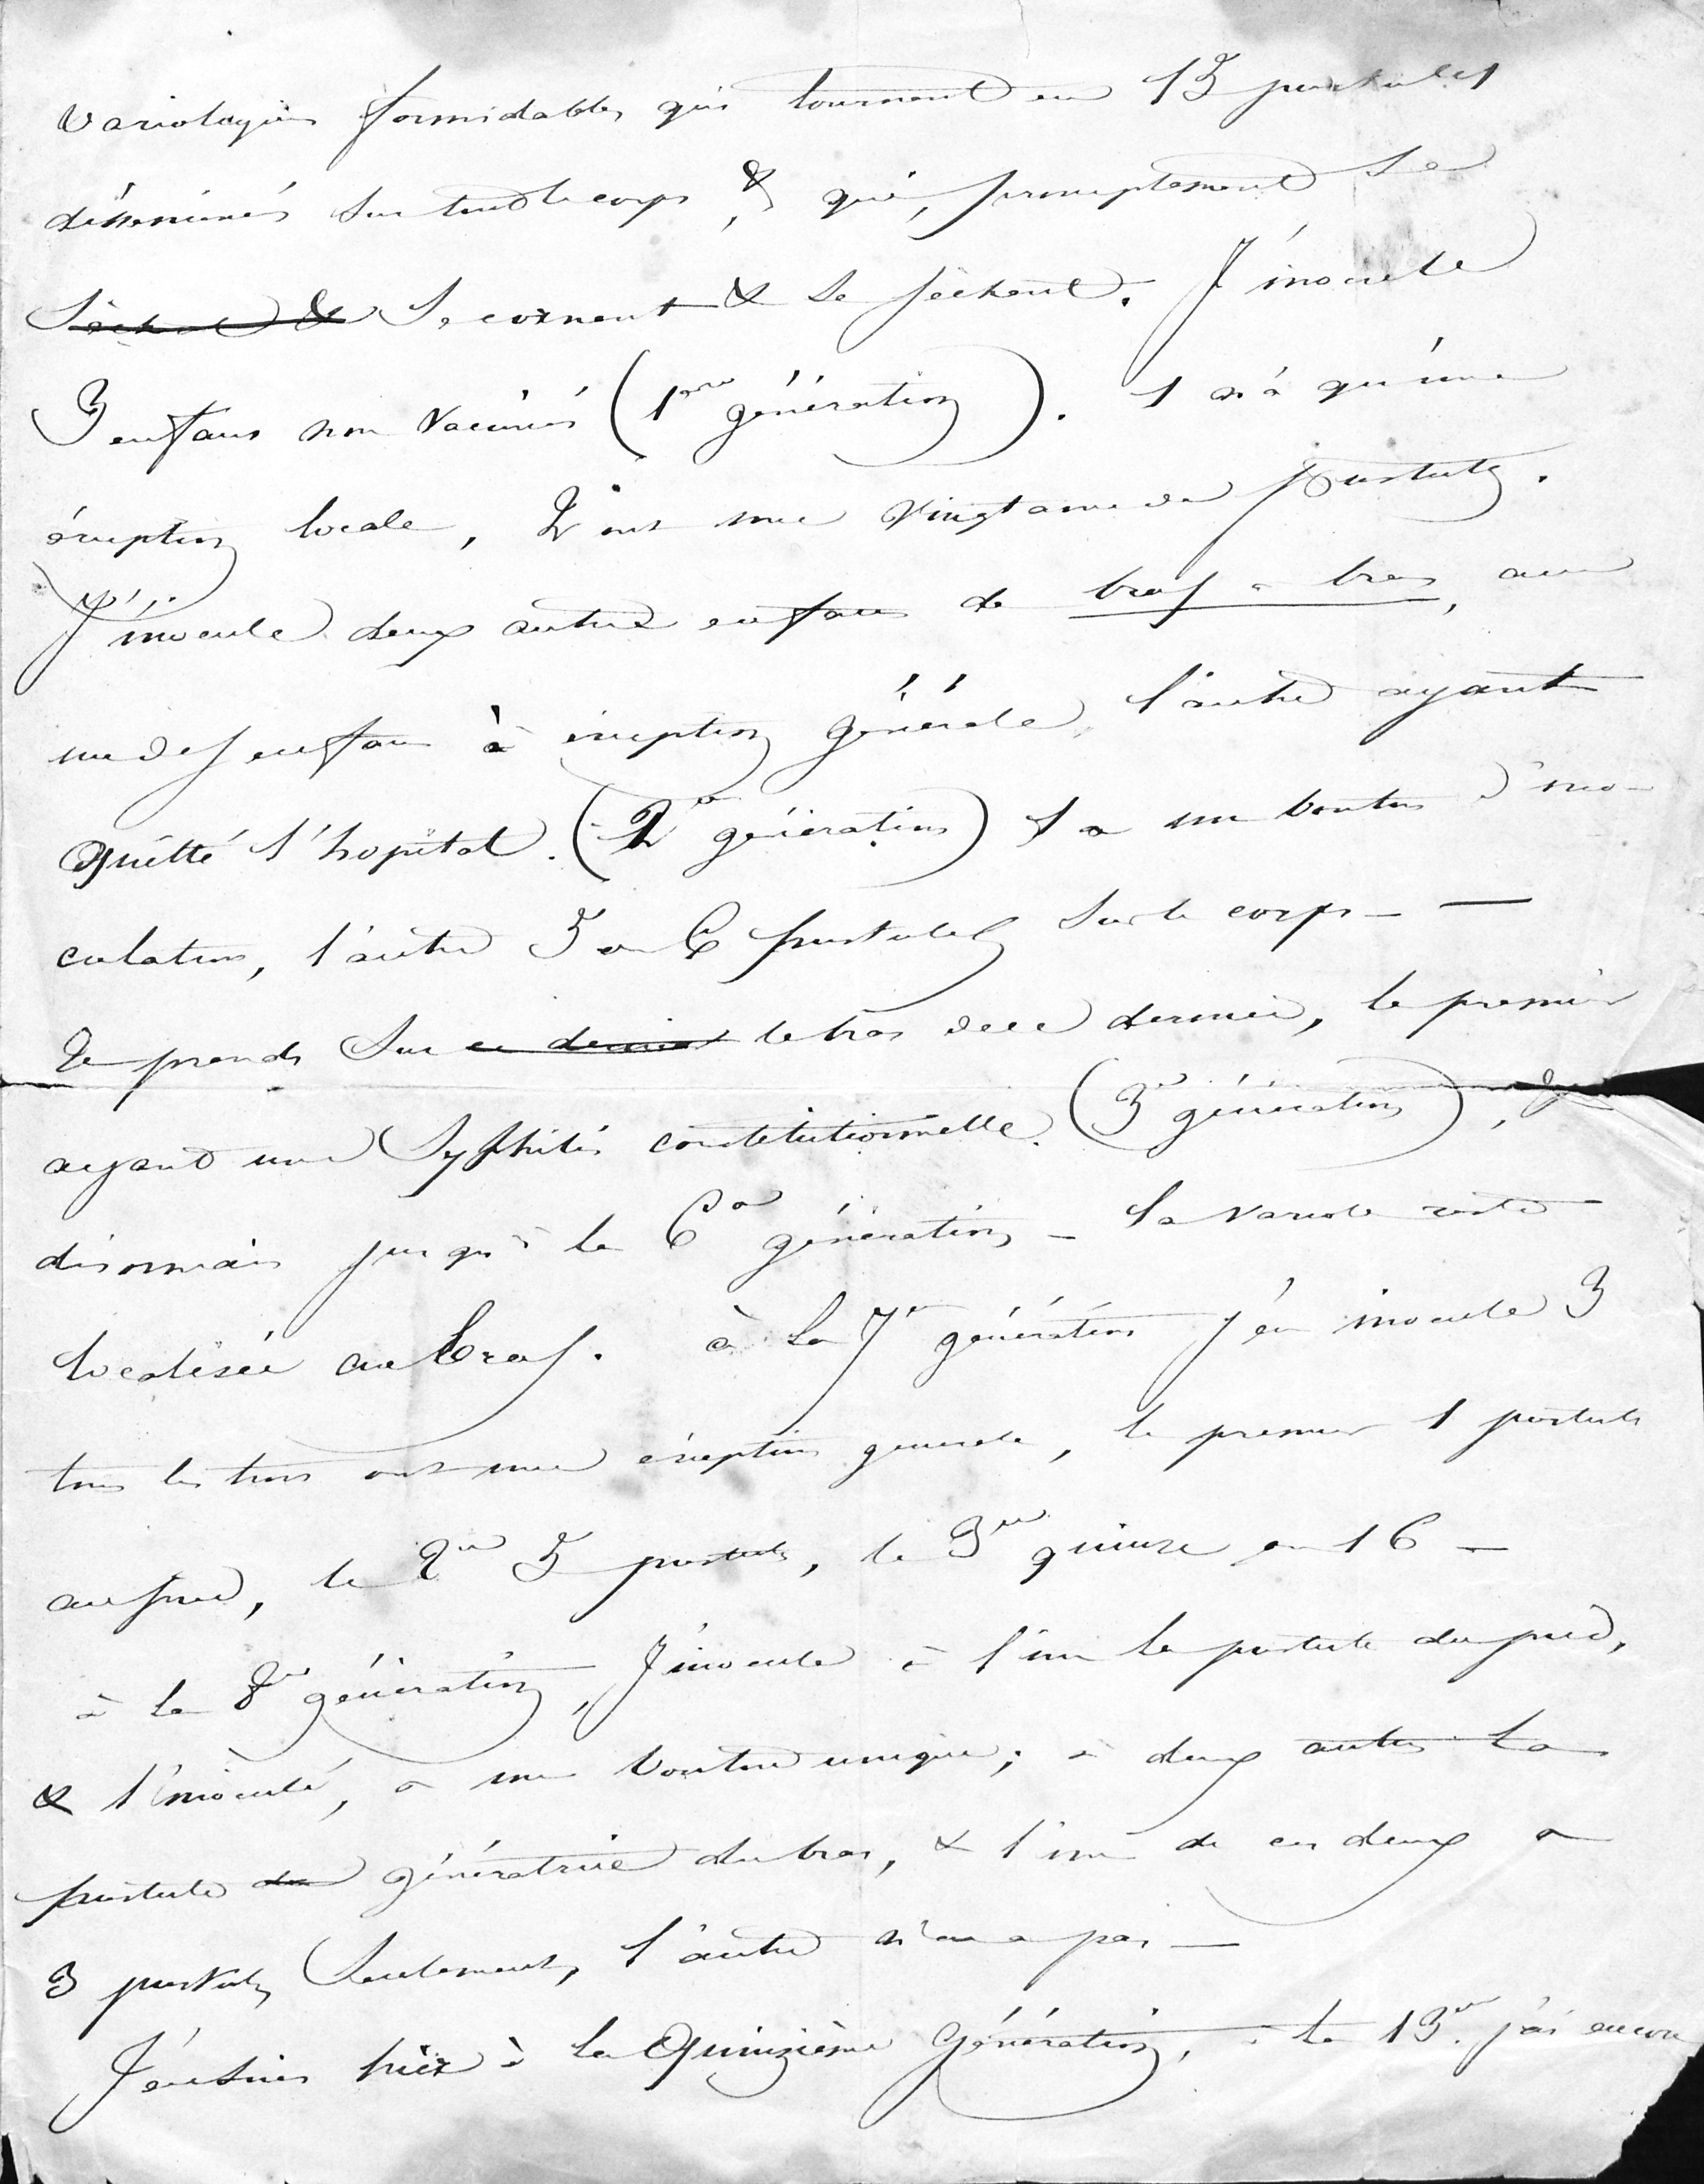 varioliques formidables qui tournent en 15 pustules
disséminés sur tout le corps, & qui, promptement se
sèchent & se cornent & se sèchent. J'inocule
3 enfans non vaccinés (1ere génération). 1 n'a qu'une
éruption locale, 2 ont une vingtaine de pustules.
J'inocule deux autres enfans de bras à bras, avec
un des enfans à éruption générale, l'autre ayant
quitté l'hopital. (2e génération) 1 a un bouton d'ino-
culation, l'autre 5 ou 6 pustules sur le corps —
Je prends sur ce dernier le bras de ce dernier, le premier
ayant une syphilis constitutionnelle. (3e génération), &
désormais jusqu'à la 6e génération — la variole reste
localisée au bras. à la 7e génération j'en inocule 3
tous les trois ont une éruption generale, le premier 1 pustule
au pied, le 2me 5 pustules, le 3me quinze ou 16 —
à la 8me génération, J'inocule à l'un la pustule du pied,
& l'inoculé, a un bouton unique; à deux autres la
pustule du génératrice du bras, & l'un de ces deux a
3 pustules seulement, l'autre n'en a pas —
J'en suis hier à la quinzième génération, à la 13me j'ai encore